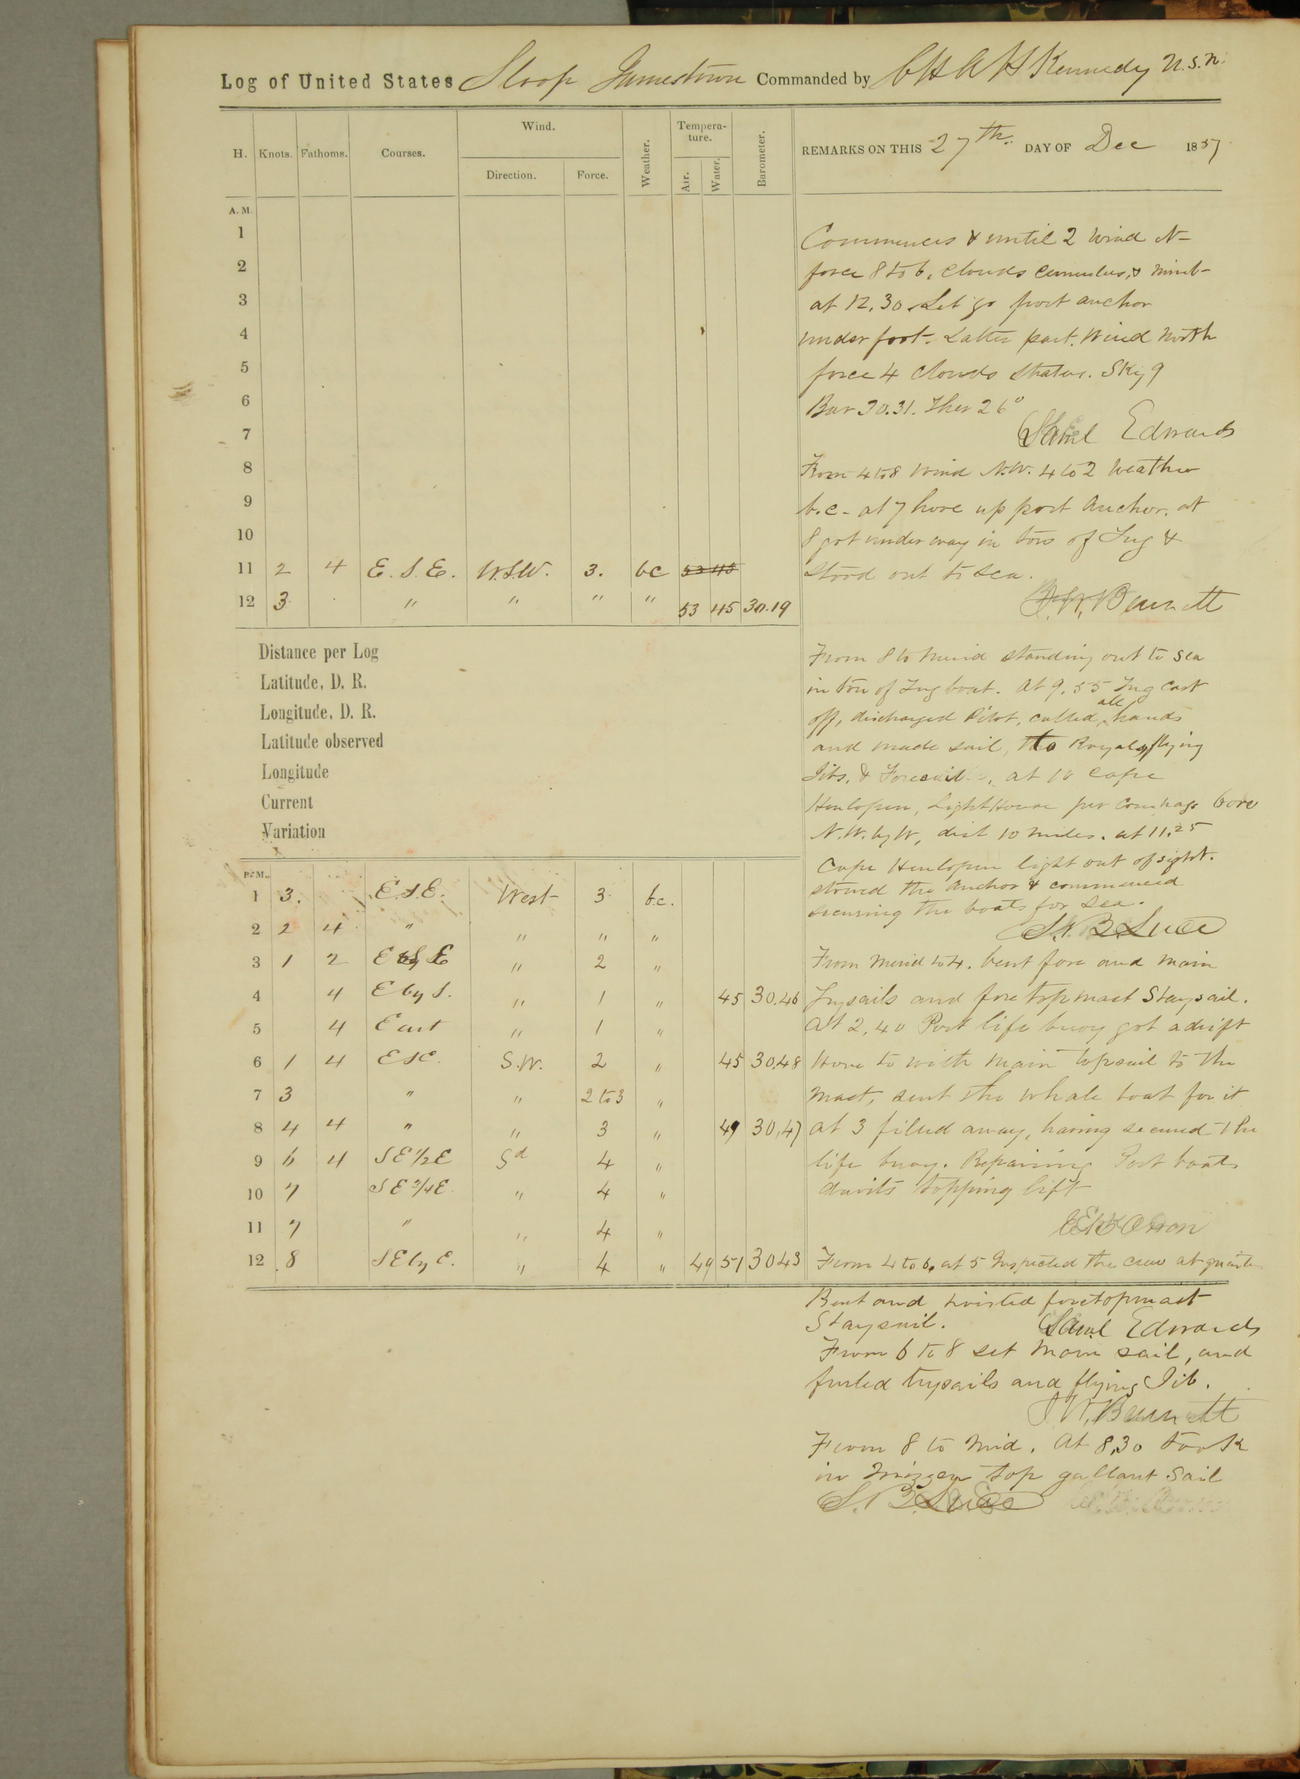 Log of United States Sloop Jamestown Commanded by C H A H Kennedy U.S.N.
H. Knots. Fathoms. Courses. Wind. Direction. Force. Weather. Tempera-ture. Air. Water. Barometer. REMARKS ON THIS 27th. DAY OF Dec 1857
A. M.
1
2
3
4
5
6
7
8
9
10
11 2 4 E. S. E. W.S.W. 3. bc 53 45
12 3 " " " " 53 45 30.19
Distance per Log
Latitude, D. R.
Longitude, D. R.
Latitude observed
Longitude
Current
Variation
P. M.
1 3. E.S.E. West 3 b.c.
2 2 4 " " " "
3 1 2 E by S " 2 "
4 4 E by S. " 1 " 45 30.46
5 4 East " 1 "
6 1 4 ESE. S.W. 2 " 45 30.48
7 3 " " 2 to 3 "
8 4 4 " " 3 " 49 30.47
9 6 4 SE 1/2 E Sd 4 "
10 7 SE 3/4 E. " 4 "
11 7 " " 4 "
12 8 SE by E. " 4 " 49 51 3043
Commences & until 2 Wind N-
force 8 to 6. Clouds Cumulus, & Nimb-
at 12.30 Let go port anchor
under foot. Latter part. Wind North
force 4 Clouds Stratus. Sky 9
Bar 30.31. Ther 26°
Saml Edwards
From 4 to 8 Wind N.W. 4 to 2 Weather
b.c- at 7 hove up port Anchor. at
8 got under way in tow of Tug &
stood out to sea.
J. W. Bennett
From 8 to Merid standing out to sea
in tow of Tug boat. At 9.55 Tug Cast
off, discharged Pilot, called all hands
and made sail, to Royals, flying
Jibs, & Foresail. at 10 Cape
Henlopen, LightHouse per Compass bore
N.W. by W, dist 10 miles. at 11.25
Cape Henlopen light out of sight.
stowed the anchor & commenced
securing the boats for sea.
S. B Luce
From Merid to 4. bent fore and main
Trysails and fore topmast Staysail.
At 2.40 Port life buoy got adrift
Hove to with Main topsail to the
Mast, sent the whale boat for it
at 3 filled away, having secured the
life buoy. Repairing Port boats
davits topping lift
From 4 to 6, at 5 Inspected the crew at quarters
Bent and hoisted foretopmast
Staysail. Saml Edwards
From 6 to 8 set Main sail, and
furled trysails and flying Jib.
J. W. Bennett
From 8 to Mid. At 8.30 took
in Mizzen top gallant Sail
S. B. Luce